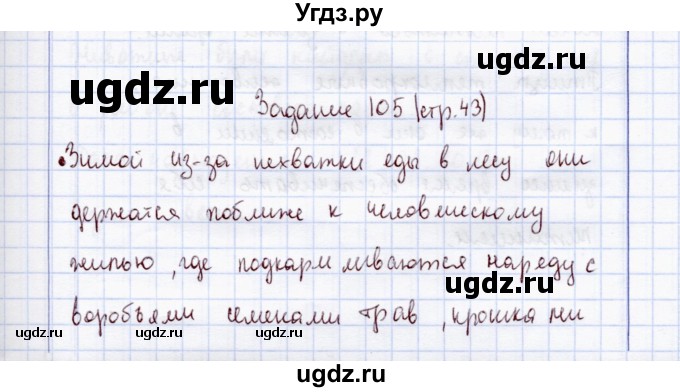 Угдз.ру
ugdz.ru
ugdz.ru
ugdz.ru
Задание 105 (стр. 43)
Зимой из-за нехватки еды в лесу они
держатся поближе к человеческому
ugdz.ru
жилью, где подкармливаются наряду с
ugdz.ru
ugdz.ru
воробьями семенами трав, крошками
ugdz.ru
ugdz.ru